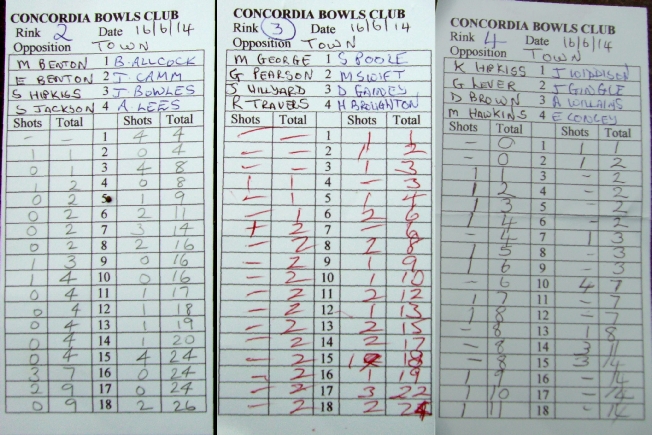 CONCORDIA BOWLS CLUB
Rink 2 Date 16/6/14
Opposition TOWN
M BEATON 1 B. ALLCOCK
E BEATON 2 J CAMM
S HIPKISS 3 J BOWLES
S JACKSON 4 A LEES
Shots Total Shots Total
– – 1 4 4
1 1 2 0 4
0 1 3 4 8
1 2 4 0 8
0 2 5 1 9
0 2 6 2 11
0 2 7 3 14
0 2 8 2 16
1 3 9 0 16
1 4 10 0 16
0 4 11 1 17
0 4 12 18
0 4 13 1 19
0 4 14 1 20
0 4 15 4 24
3 7 16 0 24
2 9 17 0 24
0 9 18 2 26
CONCORDIA BOWLS CLUB
Rink 3 Date 16/6/14
Opposition TOWN
M GEORGE 1 S POOLE
G PEARSON 2 M SWIFT
J VILLYARD 3 D
R TRAVERS 4 H BROUGHTON
Shots Total Shots Total
– – 1 1 1
– – 2 1 2
– – 3 1 3
1 1 4 – 3
– 1 5 1 4
– 1 6 2 6
+ 2 7 – 6
– 2 8 2 8
– 2 9 1 9
– 2 10 1 10
– 2 11 2 12
– 2 12 1 13
– 2 13 2 15
– 2 14 2 17
– 2 15 1 18
– 2 16 1 19
– 2 17 3 22
– 2 18 2 24
CONCORDIA BOWLS CLUB
Rink 4 Date 16/6/14
Opposition TOWN
K HIPKISS 1 J WIDDISON
G LEVER 2 J GINGLE
D BROWN 3 A WILLIAMS
M HAWKINS 4 E CONGEY
Shots Total Shots Total
– 0 1 1 1
– 0 2 1 2
1 1 3 – 2
1 2 4 – 2
1 3 5 – 2
1 4 6 – 2
– 4 7 1 3
1 5 8 – 3
1 6 9 – 3
– 6 10 4 7
1 7 11 – 7
1 8 12 – 7
– 8 13 1 8
– 8 14 3 11
– 8 15 3 14
1 9 16 – 14
1 10 17 – 14
1 11 18 – 14